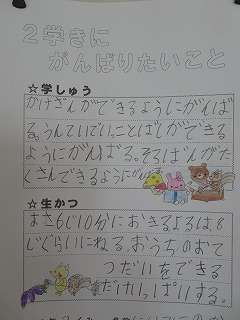 2学きに
がんばりたいこと
☆学しゅう
かけざんができるようにがんば
る。うんていでいっことばしができる
ようにがんばる。そろばんがた
くさんできるようにがんばる
☆生かつ
あさ6じ10分におきるよるは、8
じぐらいにねる。おうちのおて
つだいをできる
だけいっぱいする。